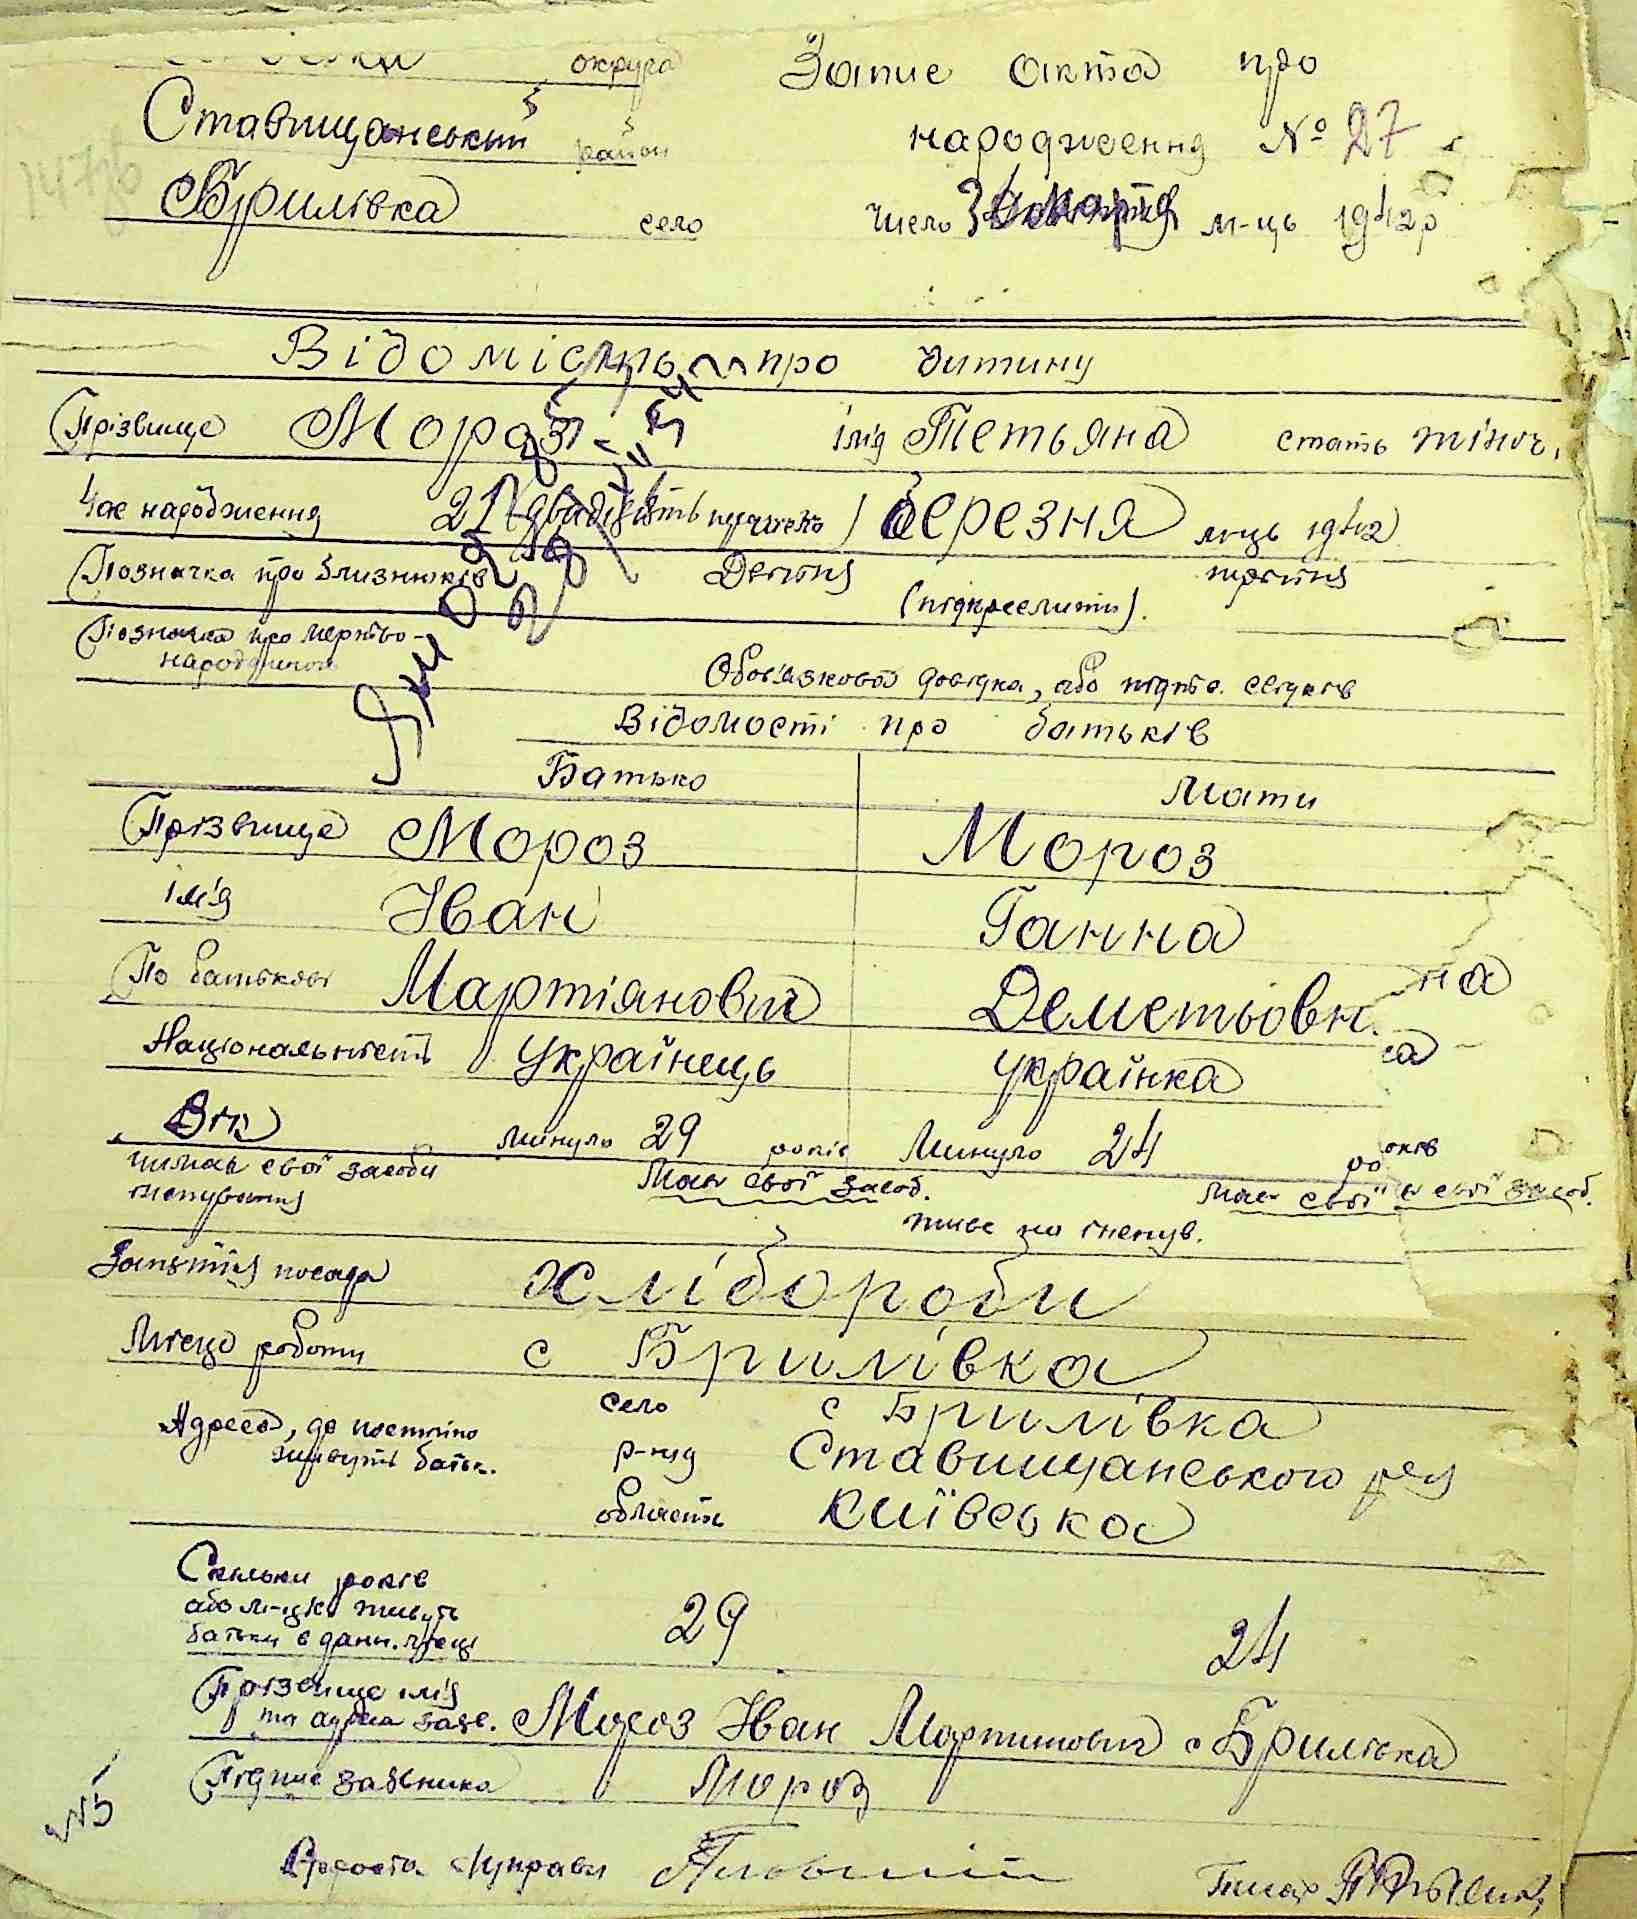 округа Запис акта про
Ставищанський район народження № 27
Брилівка село число м-ць 1942р
Відомість про дитину
Прізвище Мороз ім'я Тетьяна стать жіноч.
Час народження 21 березня м-ць 1942
Позначка про близнюків Двійня трійня
(підкреслити).
Позначка про мертво-
народження
Обов'язкова довідка, або підпис. свідків
Відомості про батьків
Батько Мати
Прізвище Мороз Мороз
ім'я Іван Ганна
По батькові Мартіянович Деметьовн на
Національність Українець українка
Вік минуло 29 років Минуло 24 років
чи має свої засоби Має свої засоб. має свої свої засоб.
існування живе на існув.
Заняття посада хлібороби
Місце роботи с Брилівка
село с Брилівка
Адреса, де постійно р-ну Ставищанського
живуть батьк. область Київська
Скільки років
або м-ців живуть 29 24
батьки в дан. місці
Прізвище ім'я
та адреса заяв. Мороз Іван Мартинович с Брилівка
Підпис заявника Мороз
№5
Староста с/управи